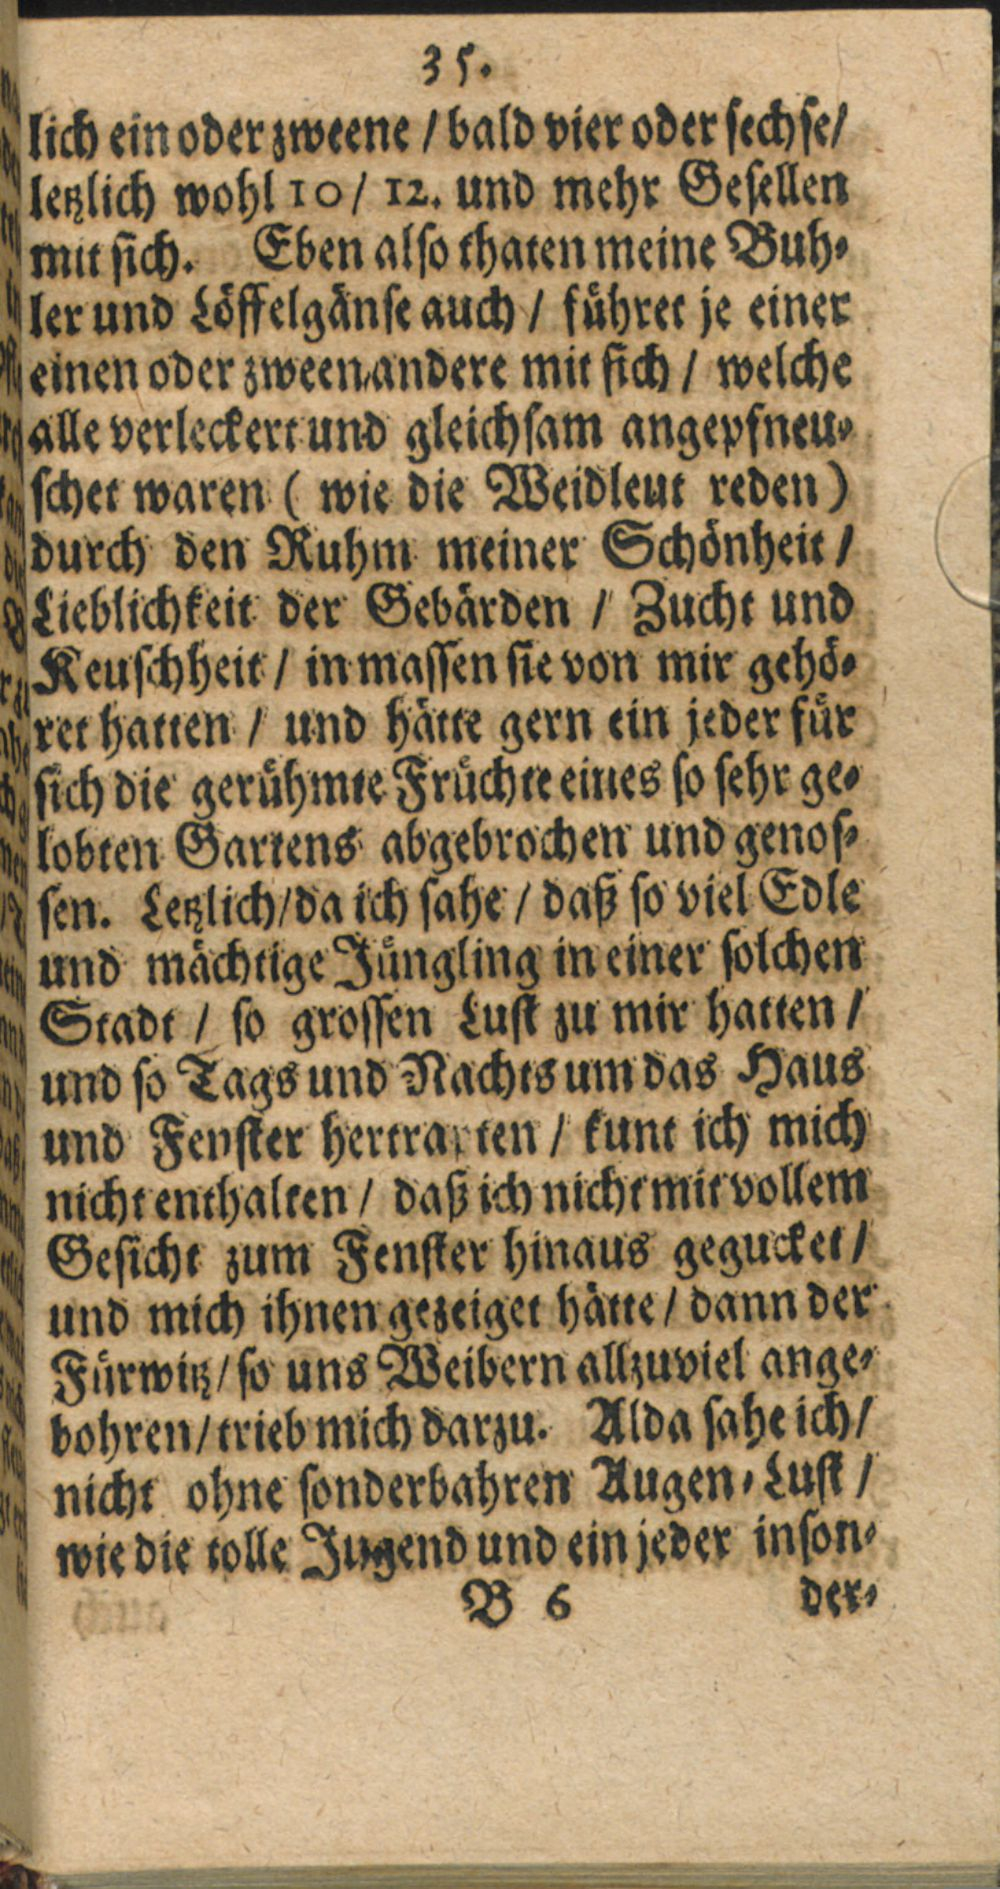 35.
lich ein oder zweene / bald vier oder sechse /
letzlich wohl 10 / 12. und mehr Gesellen
mit sich. Eben also thaten meine Buh-
ler und Löffelgänse auch / führet je einer
einen oder zween andere mit sich / welche
alle verleckert und gleichsam angepfneu-
schet waren ( wie die Weidleut reden )
durch den Ruhm meiner Schönheit /
Lieblichkeit der Gebärden / Zucht und
Keuschheit / inmassen sie von mir gehö-
ret hatten / und hätte gern ein jeder für
sich die gerühmte Früchte eines so sehr ge-
lobten Gartens abgebrochen und genos-
sen. Letzlich / da ich sahe / daß so viel Edle
und mächtige Jüngling in einer solchen
Stadt / so grossen Lust zu mir hatten /
und so Tags und Nachts um das Haus
und Fenster hertrapten / kunt ich mich
nicht enthalten / daß ich nicht mit vollem
Gesicht zum Fenster hinaus gegucket /
und mich ihnen gezeiget hätte / dann der
Fürwitz / so uns Weibern allzuviel ange-
bohren / trieb mich darzu. Alda sahe ich /
nicht ohne sonderbahren Augen-Lust /
wie die tolle Jugend und ein jeder inson-
B 6 der-